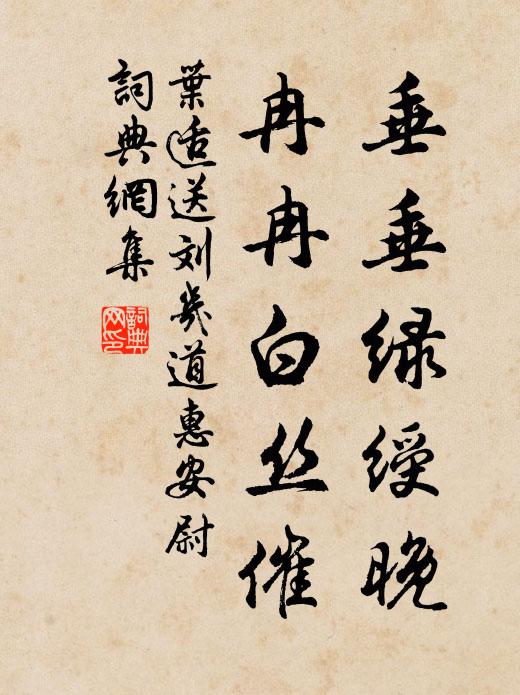 垂垂绿绶晚
冉冉白丝催
葉适送刘幾道惠安尉
詞典網集
詞典網印